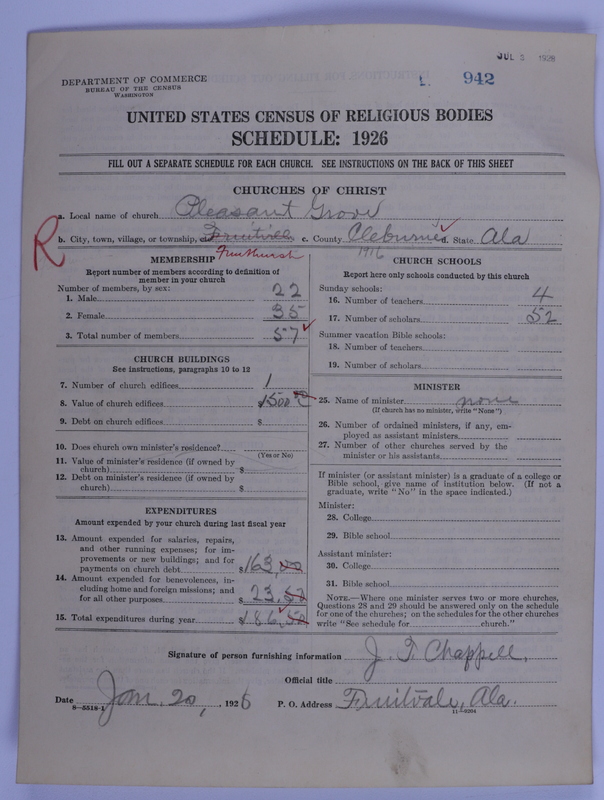 JUL 3 1928
942
DEPARTMENT OF COMMERCE
BUREAU OF THE CENSUS
WASHINGTON
UNITED STATES CENSUS OF RELIGIOUS BODIES
SCHEDULE: 1926
FILL OUT A SEPARATE SCHEDULE FOR EACH CHURCH. SEE INSTRUCTIONS ON THE BACK OF THIS SHEET
CHURCHES OF CHRIST
R
a. Local name of church Pleasant Grove
b. City, town, village, or township, c. County Cleburne d. State Ala
Fruithurst
1916
MEMBERSHIP
Report number of members according to definition of
member in your church
Number of members, by sex:
1. Male 22
2. Female 35
3. Total number of members 57
CHURCH BUILDINGS
See instructions, paragraphs 10 to 12
7. Number of church edifices 1
8. Value of church edifices 1500
9. Debt on church edifices $
10. Does church own minister's residence?
(Yes or No)
11. Value of minister's residence (if owned by
church) $
12. Debt on minister's residence (if owned by
church) $
EXPENDITURES
Amount expended by your church during last fiscal year
13. Amount expended for salaries, repairs,
and other running expenses; for im-
provements or new buildings; and for
payments on church debt $163.00
14. Amount expended for benevolences, in-
cluding home and foreign missions; and
for all other purposes $23.50
15. Total expenditures during year $186.50
CHURCH SCHOOLS
Report here only schools conducted by this church
Sunday schools:
16. Number of teachers 4
17. Number of scholars 52
Summer vacation Bible schools:
18. Number of teachers
19. Number of scholars
MINISTER
25. Name of minister none
(If church has no minister, write "None")
26. Number of ordained ministers, if any, em-
ployed as assistant ministers
27. Number of other churches served by the
minister or his assistants
If minister (or assistant minister) is a graduate of a college or
Bible school, give name of institution below. (If not a
graduate, write "No" in the space indicated.)
Minister:
28. College
29. Bible school
Assistant minister:
30. College
31. Bible school
NOTE.—Where one minister serves two or more churches,
Questions 28 and 29 should be answered only on the schedule
for one of the churches; on the schedules for the other churches
write "See schedule for church."
Signature of person furnishing information J. T. Chappell.
Official title
Date Jan. 20, 1928 P. O. Address Fruitvale, Ala.
8—5518-1 11—9204